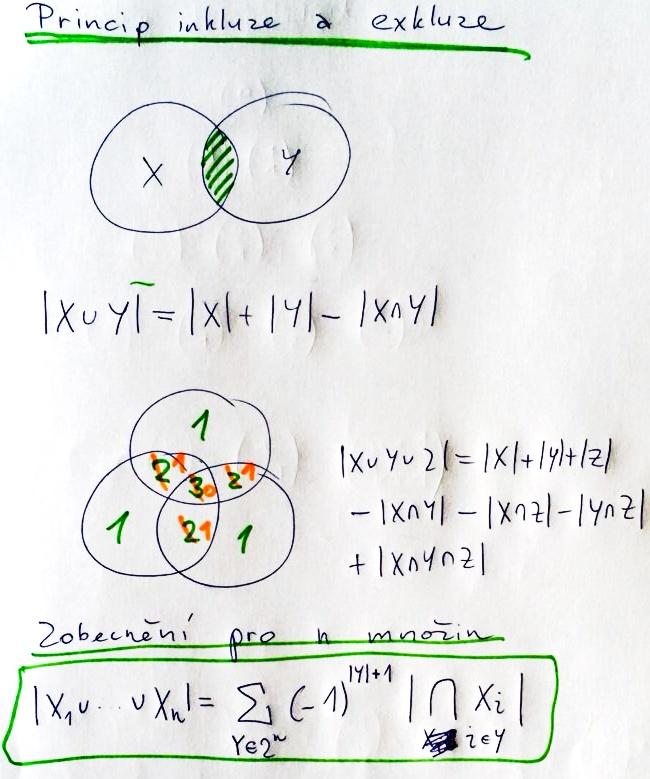 Princip inkluze a exkluze
X Y
|X∪Y| = |X| + |Y| - |X∩Y|
1
21 30 21
1 21 1
|X∪Y∪Z| = |X|+|Y|+|Z|
- |X∩Y| - |X∩Z| - |Y∩Z|
+ |X∩Y∩Z|
Zobecnění pro n množin
|X₁∪...∪Xₙ| = ∑ (-1)^|Y|+1 |⋂ Xᵢ|
Y∈2ⁿ i∈Y